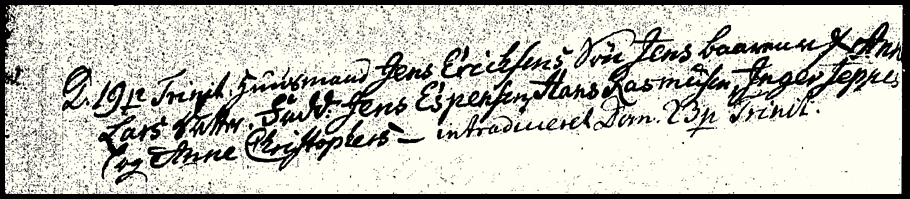 D. 19 p Trinit. Huusmand Jens Erichsens Sön Jens baaren af Ann
Lars Fadd: Jens Espensen, Hans Rasmusen, Inger Jeppes
og Anne Christophers — introduceret Dom. 23 p Trinit.